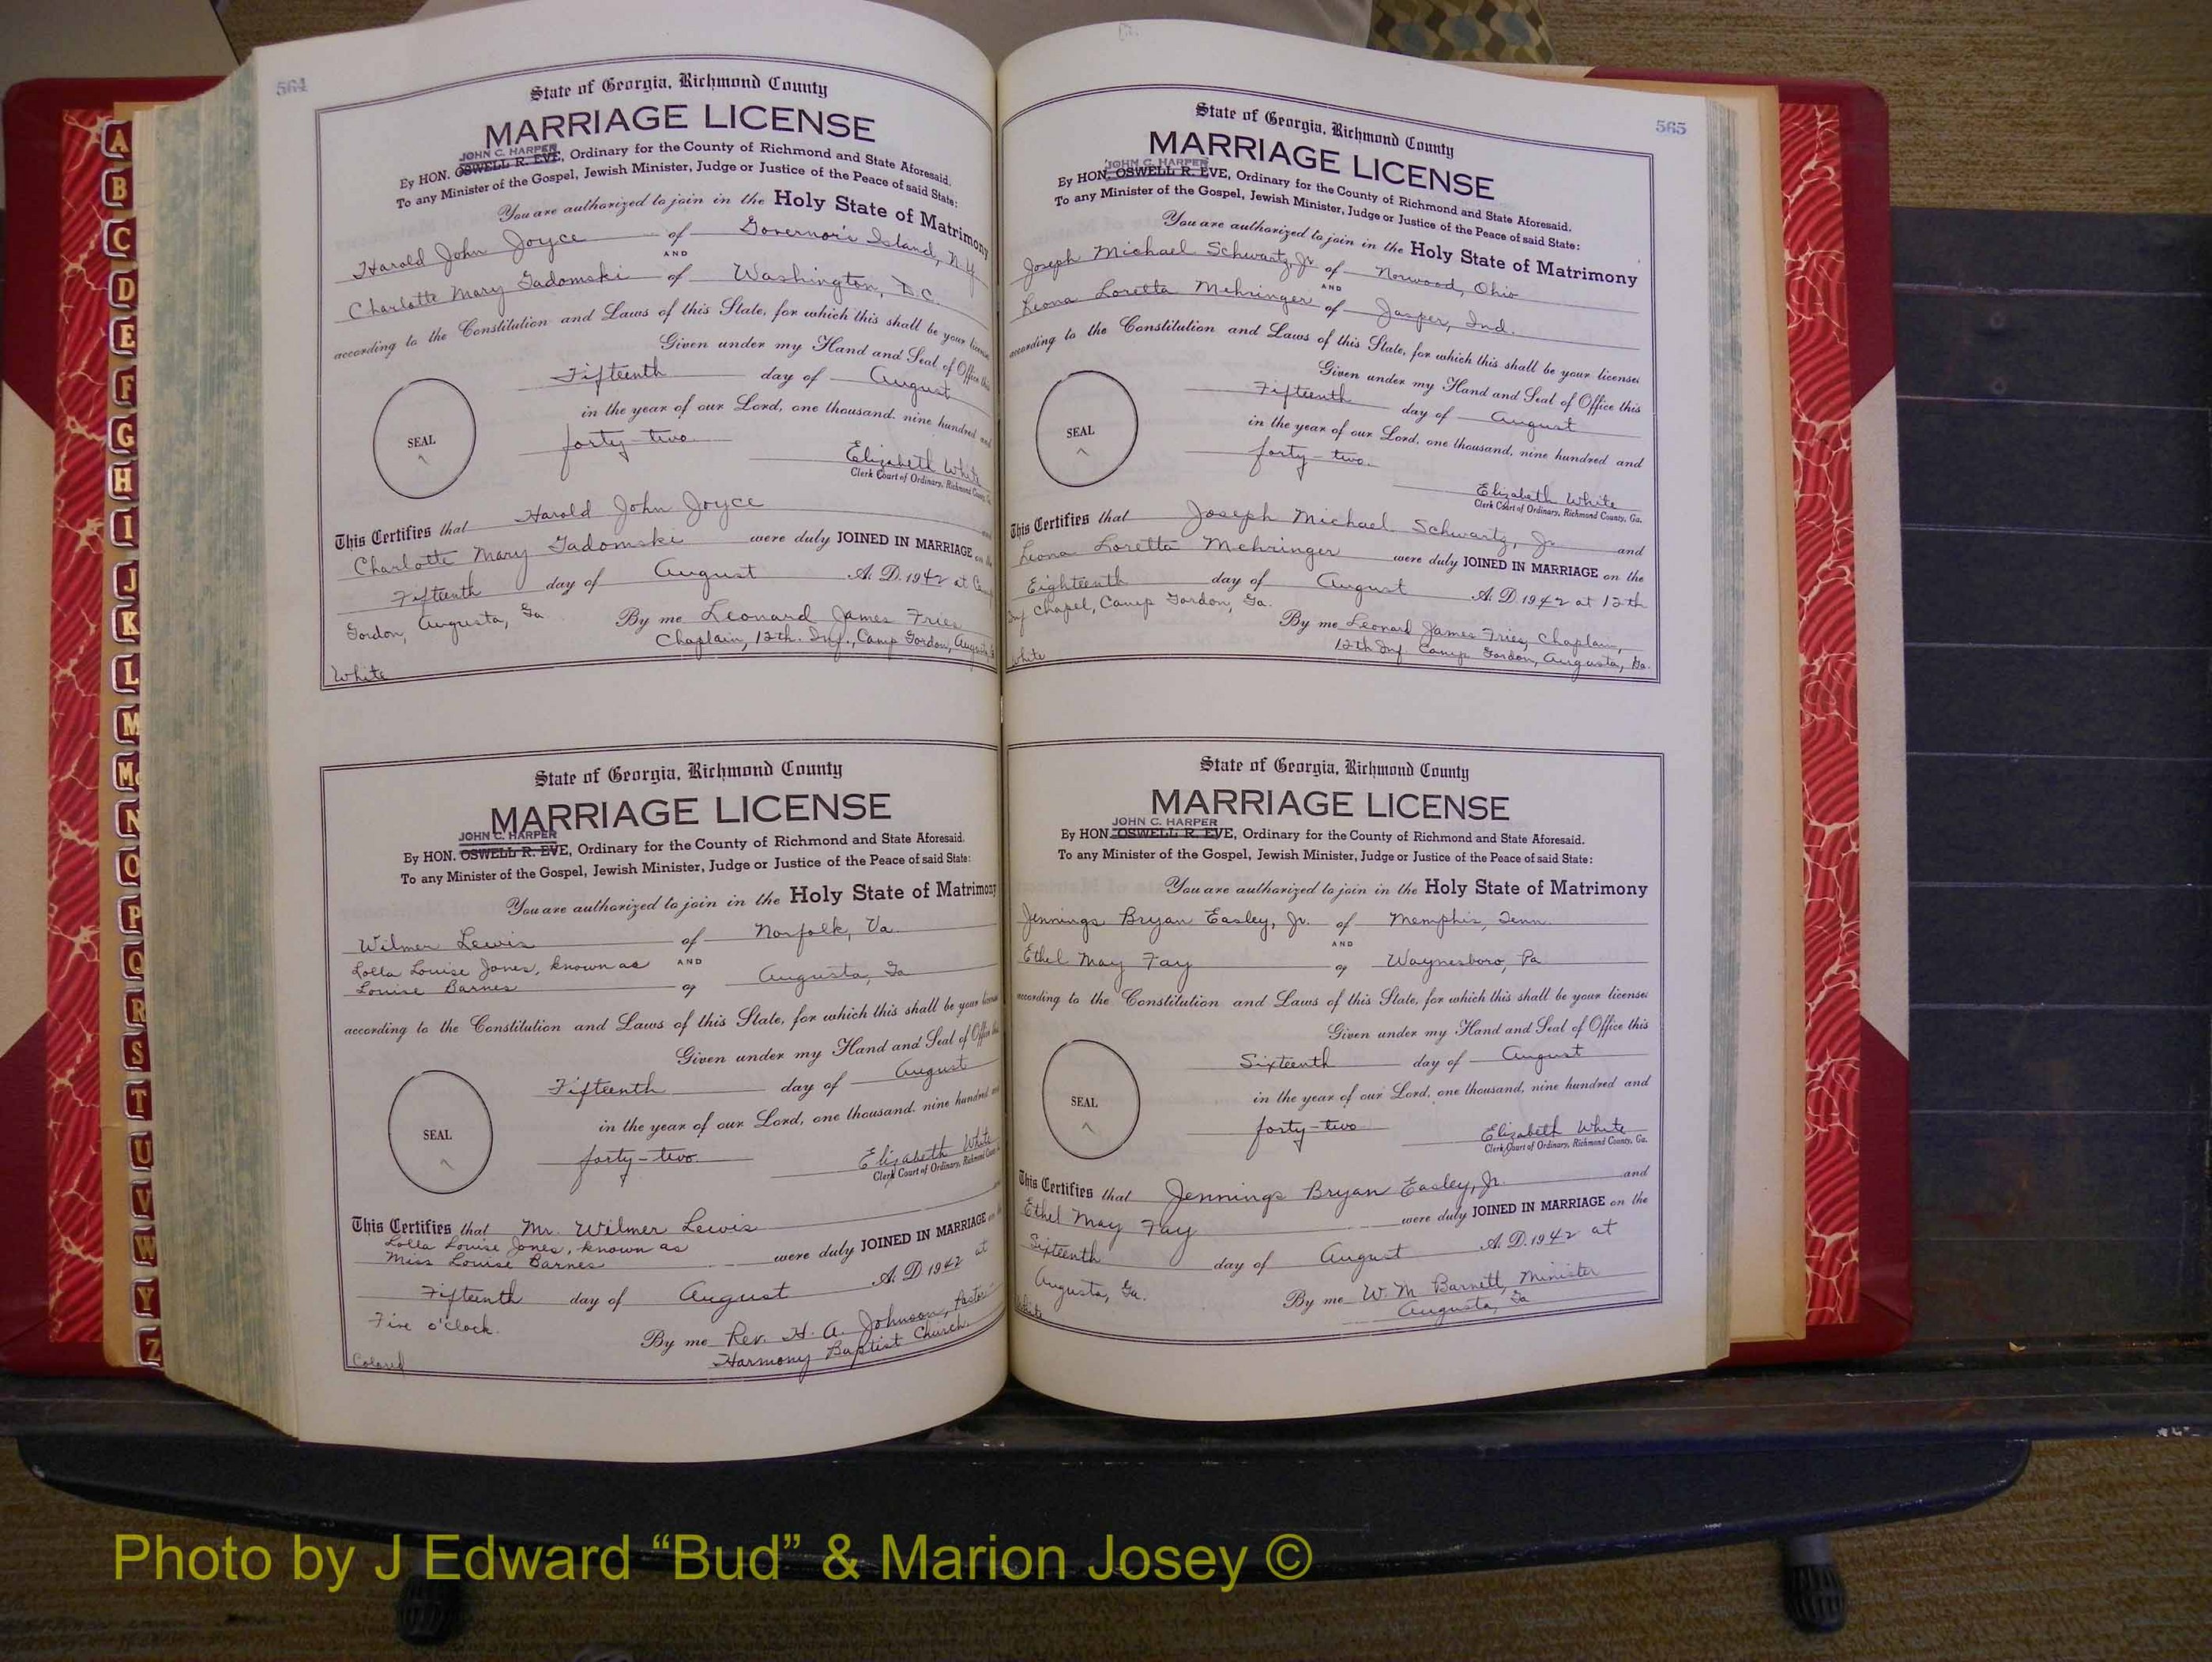 564
State of Georgia, Richmond County
MARRIAGE LICENSE
JOHN C. HARPER
By HON. OSWELL R. EVE, Ordinary for the County of Richmond and State Aforesaid.
To any Minister of the Gospel, Jewish Minister, Judge or Justice of the Peace of said State:
You are authorized to join in the Holy State of Matrimony
Harold John Joyce of Governor's Island, N.Y.
AND
Charlotte Mary Gadomski of Washington, D.C.
according to the Constitution and Laws of this State, for which this shall be your license
Given under my Hand and Seal of Office this
Fifteenth day of August
in the year of our Lord, one thousand, nine hundred and
SEAL
forty-two
Elizabeth White
Clerk Court of Ordinary, Richmond County,
This Certifies that Harold John Joyce and
Charlotte Mary Gadomski were duly JOINED IN MARRIAGE on the
Fifteenth day of August A. D. 1942 at Camp
Gordon, Augusta, Ga. By me Leonard James Fries
Chaplain, 12th. Inf., Camp Gordon, Augusta
White
State of Georgia, Richmond County
MARRIAGE LICENSE
JOHN C. HARPER
By HON. OSWELL R. EVE, Ordinary for the County of Richmond and State Aforesaid.
To any Minister of the Gospel, Jewish Minister, Judge or Justice of the Peace of said State:
You are authorized to join in the Holy State of Matrimony
Wilmer Lewis of Norfolk, Va.
AND
Lolla Louise Jones, known as
Louise Barnes of Augusta, Ga
according to the Constitution and Laws of this State, for which this shall be your license
Given under my Hand and Seal of Office this
Fifteenth day of August
in the year of our Lord, one thousand, nine hundred and
SEAL
forty-two.
Elizabeth White
Clerk Court of Ordinary, Richmond County
This Certifies that Mr. Wilmer Lewis
Lolla Louise Jones, known as
Miss Louise Barnes were duly JOINED IN MARRIAGE on the
Fifteenth day of August A. D. 1942 at
Five o'clock. By me Rev. H. A. Johnson, Pastor
Harmony Baptist Church.
Colored
565
State of Georgia, Richmond County
MARRIAGE LICENSE
JOHN C. HARPER
By HON. OSWELL R. EVE, Ordinary for the County of Richmond and State Aforesaid.
To any Minister of the Gospel, Jewish Minister, Judge or Justice of the Peace of said State:
You are authorized to join in the Holy State of Matrimony
Joseph Michael Schwartz, Jr. of Norwood, Ohio
AND
Leona Loretta Mehringer of Jasper, Ind.
according to the Constitution and Laws of this State, for which this shall be your license:
Given under my Hand and Seal of Office this
Fifteenth day of August
in the year of our Lord, one thousand, nine hundred and
SEAL
forty-two.
Elizabeth White
Clerk Court of Ordinary, Richmond County, Ga.
This Certifies that Joseph Michael Schwartz, Jr. and
Leona Loretta Mehringer were duly JOINED IN MARRIAGE on the
Eighteenth day of August A. D. 1942 at 12th
Inf Chapel, Camp Gordon, Ga. By me Leonard James Fries, Chaplain,
12th Inf Camp Gordon, Augusta, Ga.
White
State of Georgia, Richmond County
MARRIAGE LICENSE
JOHN C. HARPER
By HON. OSWELL R. EVE, Ordinary for the County of Richmond and State Aforesaid.
To any Minister of the Gospel, Jewish Minister, Judge or Justice of the Peace of said State:
You are authorized to join in the Holy State of Matrimony
Jennings Bryan Easley, Jr. of Memphis, Tenn.
AND
Ethel May Fay of Waynesboro, Pa
according to the Constitution and Laws of this State, for which this shall be your license:
Given under my Hand and Seal of Office this
Sixteenth day of August
in the year of our Lord, one thousand, nine hundred and
SEAL
forty-two
Elizabeth White
Clerk Court of Ordinary, Richmond County, Ga.
This Certifies that Jennings Bryan Easley, Jr. and
Ethel May Fay were duly JOINED IN MARRIAGE on the
Sixteenth day of August A. D. 1942 at
Augusta, Ga. By me W. M. Barnett, Minister
Augusta, Ga
White
A
B
C
D
E
F
G
H
I
J
K
L
M
Mc
N
O
P
Q
R
S
T
U
V
W
Y
Z
Photo by J Edward “Bud” & Marion Josey ©